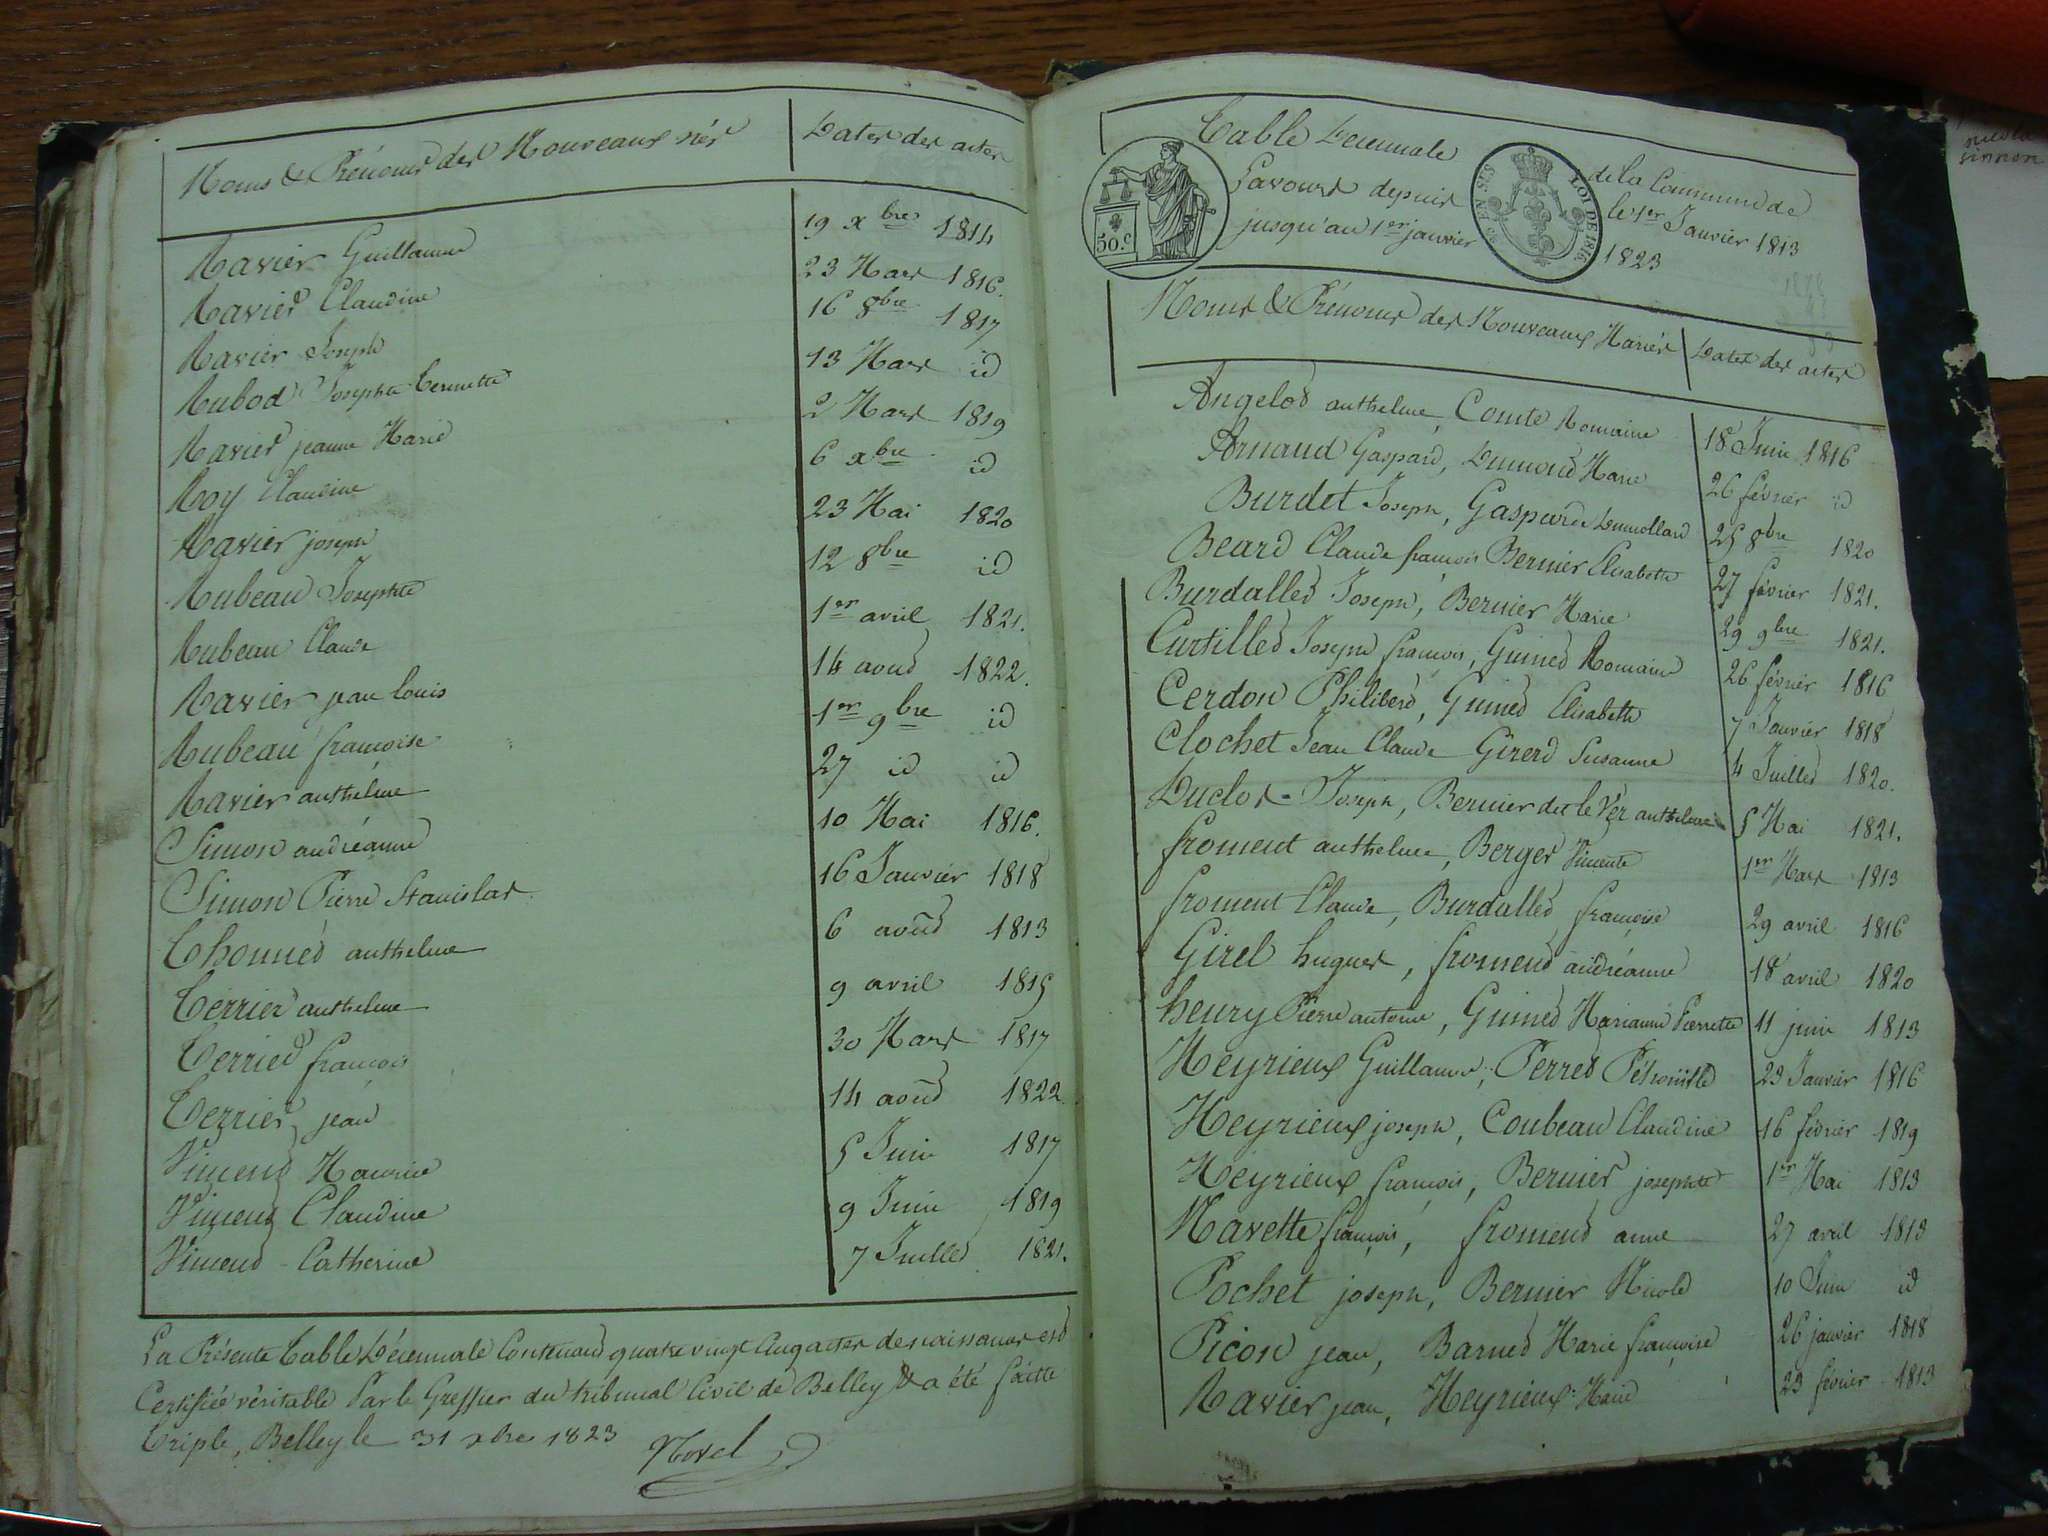 Noms & Prénoms des Nouveaux nés Dates des actes
Ravier Guillaume 19 xbre 1814
Ravier Claudine 23 Mars 1816.
Ravier Joseph 16 8bre 1817
Rubod Josephte 13 Mars id
Ravier jeanne Marie 2 Mars 1819
Roy Claudine 6 xbre id
Ravier joseph 23 Mai 1820
Rubeau Josephte 12 8bre id
Rubeau Claude 1er avril 1821.
Ravier jean Louis 14 aout 1822.
Rubeau françoise 1er 9bre id
Ravier anthelme 27 id id
Simon andréanne 10 Mai 1816.
Simon Pierre Stanislas 16 Janvier 1818
Thonned anthelme 6 aout 1813
Terrier anthelme 9 avril 1815
Terrier françois 30 Mars 1817
Terrier jean 14 aout 1822
Vincent Maurice 5 Juin 1817
Vincent Claudine 9 Juin 1819
Vincent Catherine 7 Juillet 1821.
La Présente Table Décennale Contenant quatre vingt Cinq actes de naissances est
Certifiée véritable Par le Greffier du tribunal Civil de Belley & a été faitte
triple, Belley le 31 xbre 1823
Table Décennale de la Commune de
Lavours depuis le 1er Janvier 1813
jusqu'au 1er janvier 1823
50.c
EN SUS
LOI DE 1816
Noms & Prénoms des Nouveaux Mariés Dates des actes
Angelot anthelme, Comte Romaine 18 Juin 1816
Arnaud Gaspard, Dumond Marie 26 février id
Burdet Joseph, Gasparde Dumollard 25 8bre 1820
Beard Claude françois Bernier Elisabette 27 février 1821.
Burdallet Joseph, Bernier Marie 29 9bre 1821.
Curtillet Joseph françois, Guinet Romaine 26 février 1816
Cerdon Philibert, Guinet Elisabette 7 Janvier 1818
Clochet Jean Claude Girerd Susanne 4 Juillet 1820.
Duclos Joseph, Bernier dit le Ver anthelme 5 Mai 1821.
froment anthelme, Berger Vincente 1er Mars 1813
froment Claude, Burdallet françoise 29 avril 1816
Girel hugues, froment andréanne 18 avril 1820
henry Pierre antoine, Guinet Marianne Pierrette 11 juin 1813
Meyrieux Guillaume, Perret Pétronille 29 Janvier 1816
Meyrieux joseph, Coubeau Claudine 16 février 1819
Meyrieux françois, Bernier josephte 1er Mai 1813
Navette françois, froment anne 27 avril 1813
Pochet joseph, Bernier Nicole 10 Juin id
Picon jean, Barnet Marie françoise 26 janvier 1818
Ravier jean, Meyrieux Marie 23 février 1813